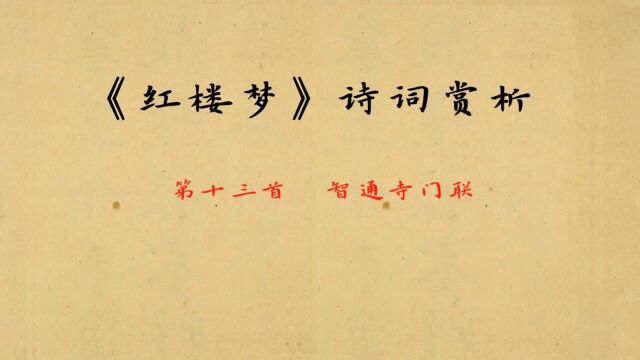 《红楼梦》诗词赏析
第十三首 智通寺门联